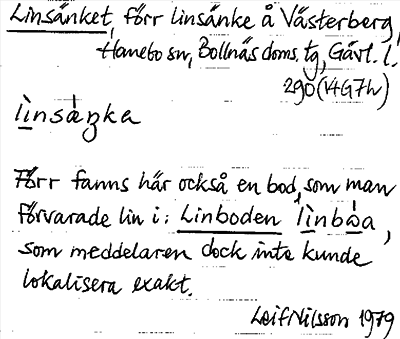 Linsänket, förr linsänke å Västerberg,
Hanebo sn, Bollnäs doms. tg, Gävl. l.
290 (14G7h)
lìnsäŋka
Förr fanns här också en bod, som man
förvarade lin i: Linboden lìnbωa,
som meddelaren dock inte kunde
lokalisera exakt.
Leif Nilsson 1979